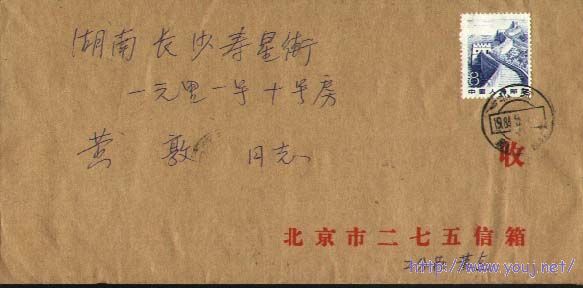 湖南长沙寿星街
一元里一号十号房
黄敦 同志
收
北京市二七五信箱
8
中国人民邮政
http://www.youj.net/